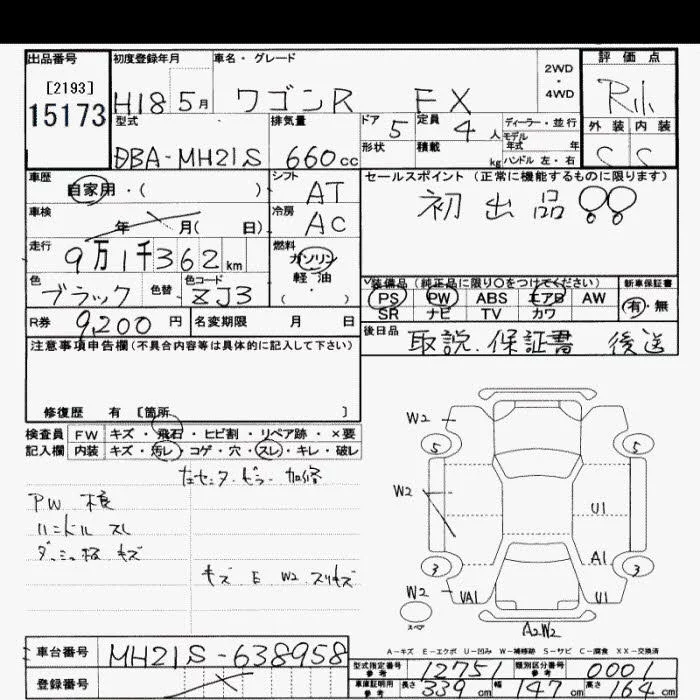 出品番号 初度登録年月 車名・グレード 2WD・4WD 評価点
[2193]
15173
H18 5月 ワゴンR FX R小
型式 排気量 ドア 5 定員 4人 ディーラー・並行 外装 内装
モデル年式 年
DBA-MH21S 660cc 形状 積載 kg ハンドル 左・右 C C
車歴 自家用・( ) シフト AT セールスポイント(正常に機能するものに限ります)
車検 年 月( 日) 冷房 AC 初出品!!
走行 9万1千362km 燃料 ガソリン 軽油 ( ・ )
色 ブラック 色替 色コード ZJ3
装備品(純正品に限り○をつけてください) 新車保証書
PS PW ABS エアB AW 有・無
SR ナビ TV カワ
R券 9,200円 名変期限 月 日 後日品 取説.保証書 後送
注意事項申告欄(不具合内容等は具体的に記入して下さい)
修復歴 有 [箇所 ]
検査員 FW キズ・飛石・ヒビ割・リペア跡・×要
記入欄 内装 キズ・汚レ・コゲ・穴・スレ・キレ・破レ
PW 様
ハンドル スレ
キズ E W2 スリキズ
W2
5 5
W2
U1
A1
3 3
W2 UA1 U1
スペア
A2 W2
A-キズ E-エクボ U-凹み W-補修跡 S-サビ C-腐食 XX-交換済
車台番号 MH21S-638958
型式指定番号 参考 12751 類別区分番号 参考 0001
登録番号
車庫証明用 参考 長さ 339cm 幅 147cm 高さ 164cm